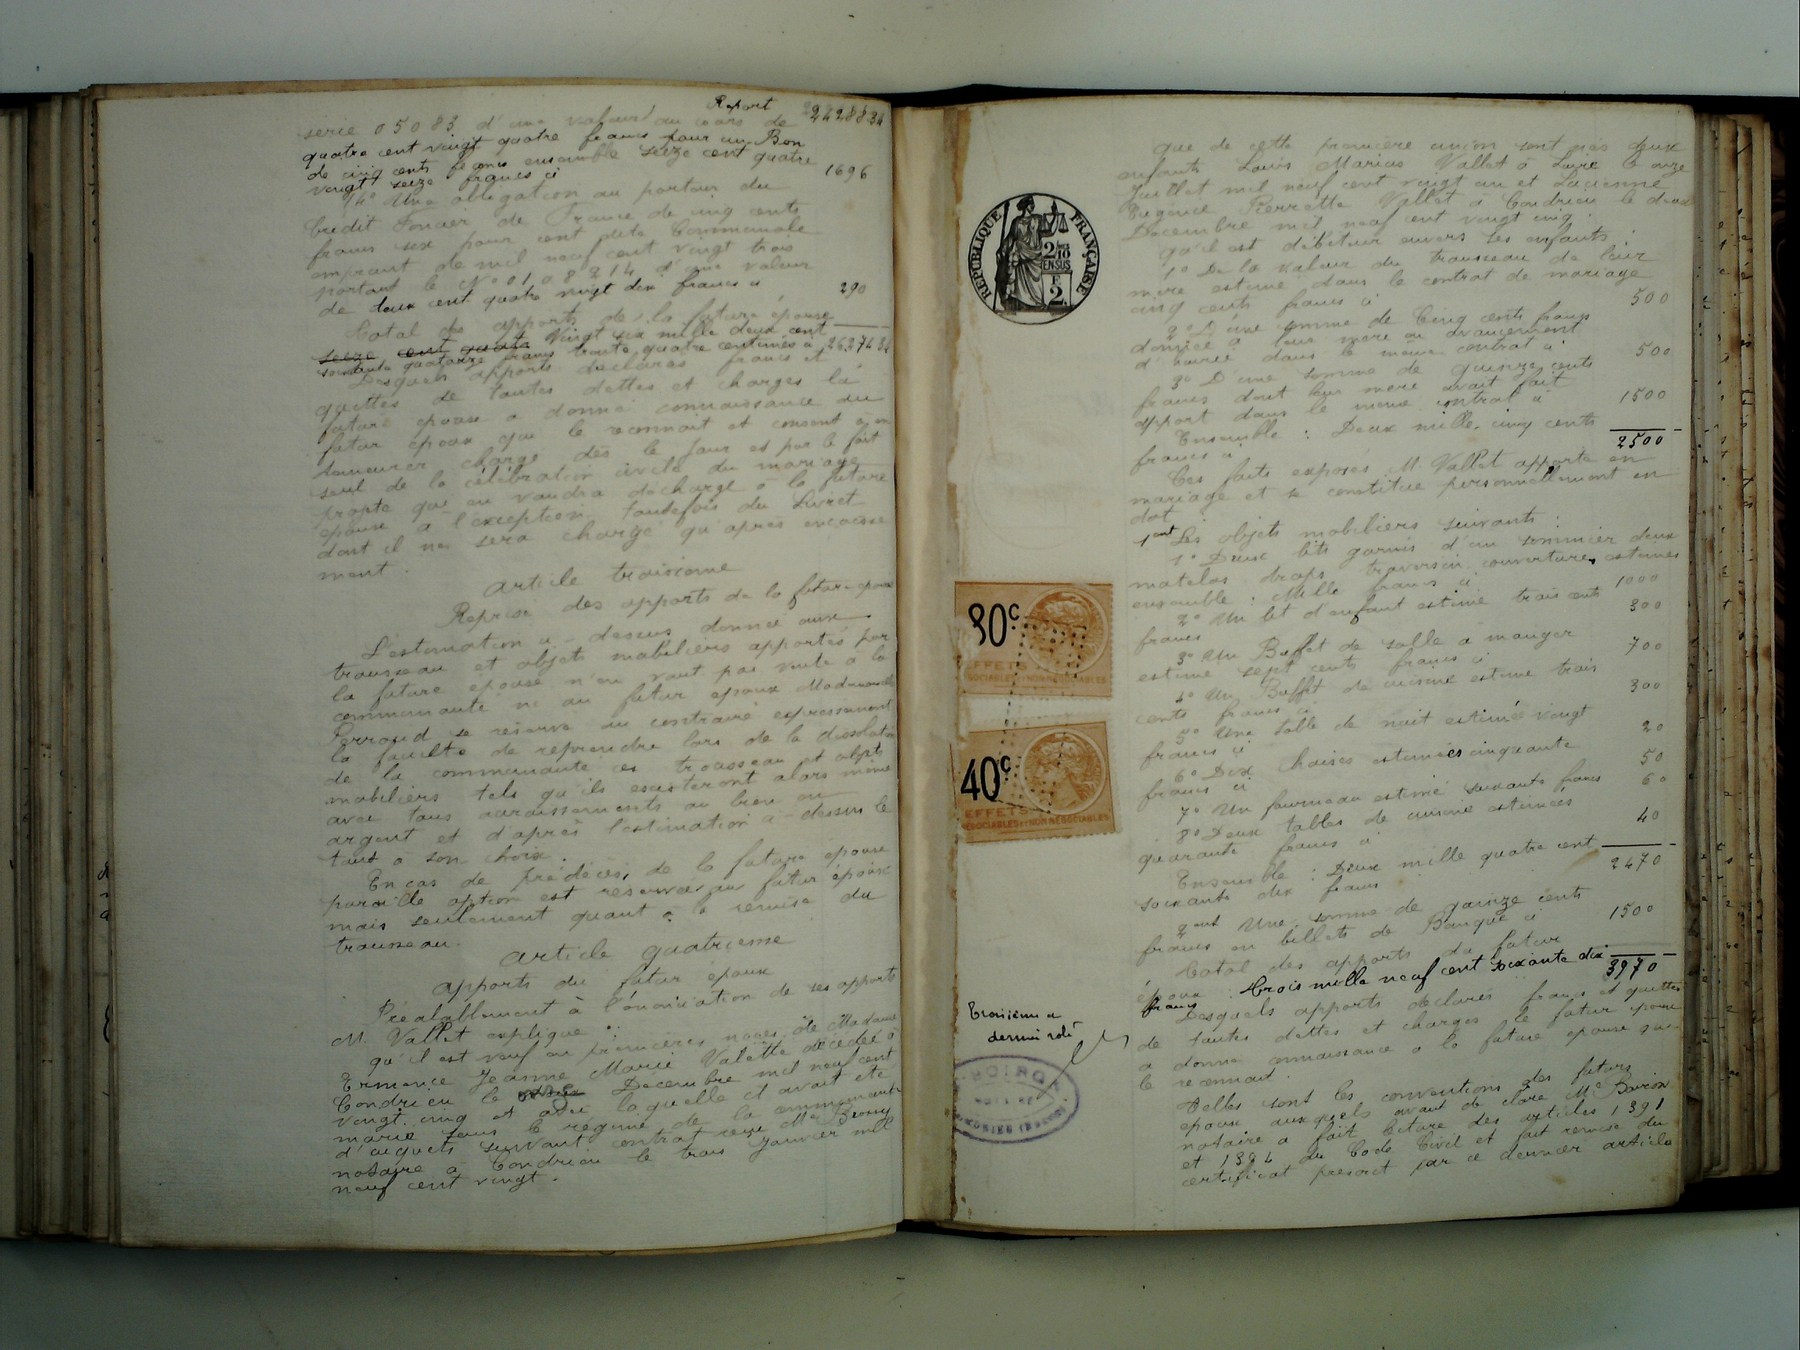 Report 24288 34
série 05083 d'une valeur au cours de
quatre cent vingt quatre francs pour un Bon
de cinq cents francs ensemble seize cent quatre
vingt seize francs ci 1696
14° Une obligation au porteur du
Crédit Foncier de France de cinq cents
francs six pour cent dite Communale
emprunt de mil neuf cent vingt trois
portant le N° 0108214 d'une valeur
de deux cent quatre vingt dix francs ci 290
Total des apports de la future épouse
seize cent quatre Vingt six mille deux cent
soixante quatorze francs trente quatre centimes ci 26.274 34
Lesquels apports déclarés francs et
quittes de toutes dettes et charges la
future épouse a donné connaissance au
futur époux qui le reconnait et consent à en
demeurer chargé dès le jour et par le fait
seul de la célébration civile du mariage
projeté qui en vaudra décharge à la future
épouse à l'exception toutefois du Livret
dont il ne sera chargé qu'après encaisse
ment.
Article troisième
Reprise des apports de la future épouse
L'estimation ci-dessus donnée aux
trousseau et objets mobiliers apportés par
la future épouse n'en vaut pas vente à la
communauté ni au futur époux Mademoiselle
Perraud se réserve au contraire expressément
la faculté de reprendre lors de la dissolution
de la communauté ces trousseau et objets
mobiliers tels qu'ils existeront alors même
avec tous accroissements au bien ou
argent et d'après l'estimation ci-dessus le
tout à son choix.
En cas de prédécès de la future épouse
pareille option est réservée au futur époux
mais seulement quant à la remise du
trousseau.
Article quatrième
Apports du futur époux
Préalablement à l'énonciation de ses apports
M. Vallet explique :
qu'il est veuf en premières noces de Madame
Ermance Jeanne Marie Valette décédée à
Condrieu le Décembre mil neuf cent
vingt cinq et avec laquelle il avait été
marié sous le régime de la communauté
d'acquets suivant contrat reçu Me
notaire à Condrieu le trois Janvier mil
neuf cent vingt.
que de cette première union sont nés deux
enfants Louis Marius Vallet à Loire le onze
Juillet mil neuf cent vingt un et Lucienne
Eugénie Pierrette Vallet à Condrieu le deux
Décembre mil neuf cent vingt cinq.
qu'il est débiteur envers ses enfants :
1° De la valeur du trousseau de leur
mère estimé dans le contrat de mariage
cinq cents francs ci 500
2° D'une somme de Cinq cents francs
donnée à leur mère en avancement
d'hoirie dans le même contrat ci 500
3° D'une somme de quinze cents
francs dont leur mère avait fait
apport dans le même contrat ci 1500
Ensemble : Deux mille cinq cents
francs ci 2500
Ces faits exposés M. Vallet apporte en
mariage et se constitue personnellement en
dot
1ent Les objets mobiliers suivants :
1° Deux lits garnis d'un sommier deux
matelas draps traversin couvertures, estimés
ensemble : Mille francs ci 1000
2° Un lit d'enfant estimé trois cents
francs 300
3° Un Buffet de salle à manger
estimé sept cents francs ci 700
4° Un Buffet de cuisine estimé trois
cents francs ci 300
5° Une table de nuit estimée vingt
francs ci 20
6° Dix chaises estimées cinquante
francs ci 50
7° Un fourneau estimé soixante francs 60
8° Deux tables de cuisine estimées
quarante francs ci 40
Ensemble : Deux mille quatre cent
soixante dix francs 2470
2ent Une somme de quinze cents
francs en billets de Banque ci 1500
Total des apports du futur
époux : Trois mille neuf cent soixante dix
francs 3970
Desquels apports déclarés francs et quittes
de toutes dettes et charges le futur époux
a donné connaissance à la future épouse qui
le reconnait.
Telles sont les conventions des futurs
époux auxquels avant de clore Me Boiron
notaire a fait lecture des articles 1391
et 1394 du Code Civil et fait remise du
certificat prescrit par ce dernier article
RÉPUBLIQUE FRANÇAISE
2/10
EN SUS
2F
80c
EFFETS
NÉGOCIABLES ET NON NÉGOCIABLES
40c
EFFETS
NÉGOCIABLES ET NON NÉGOCIABLES
Troisième et
dernier rôle
BOIRON
NOTAIRE